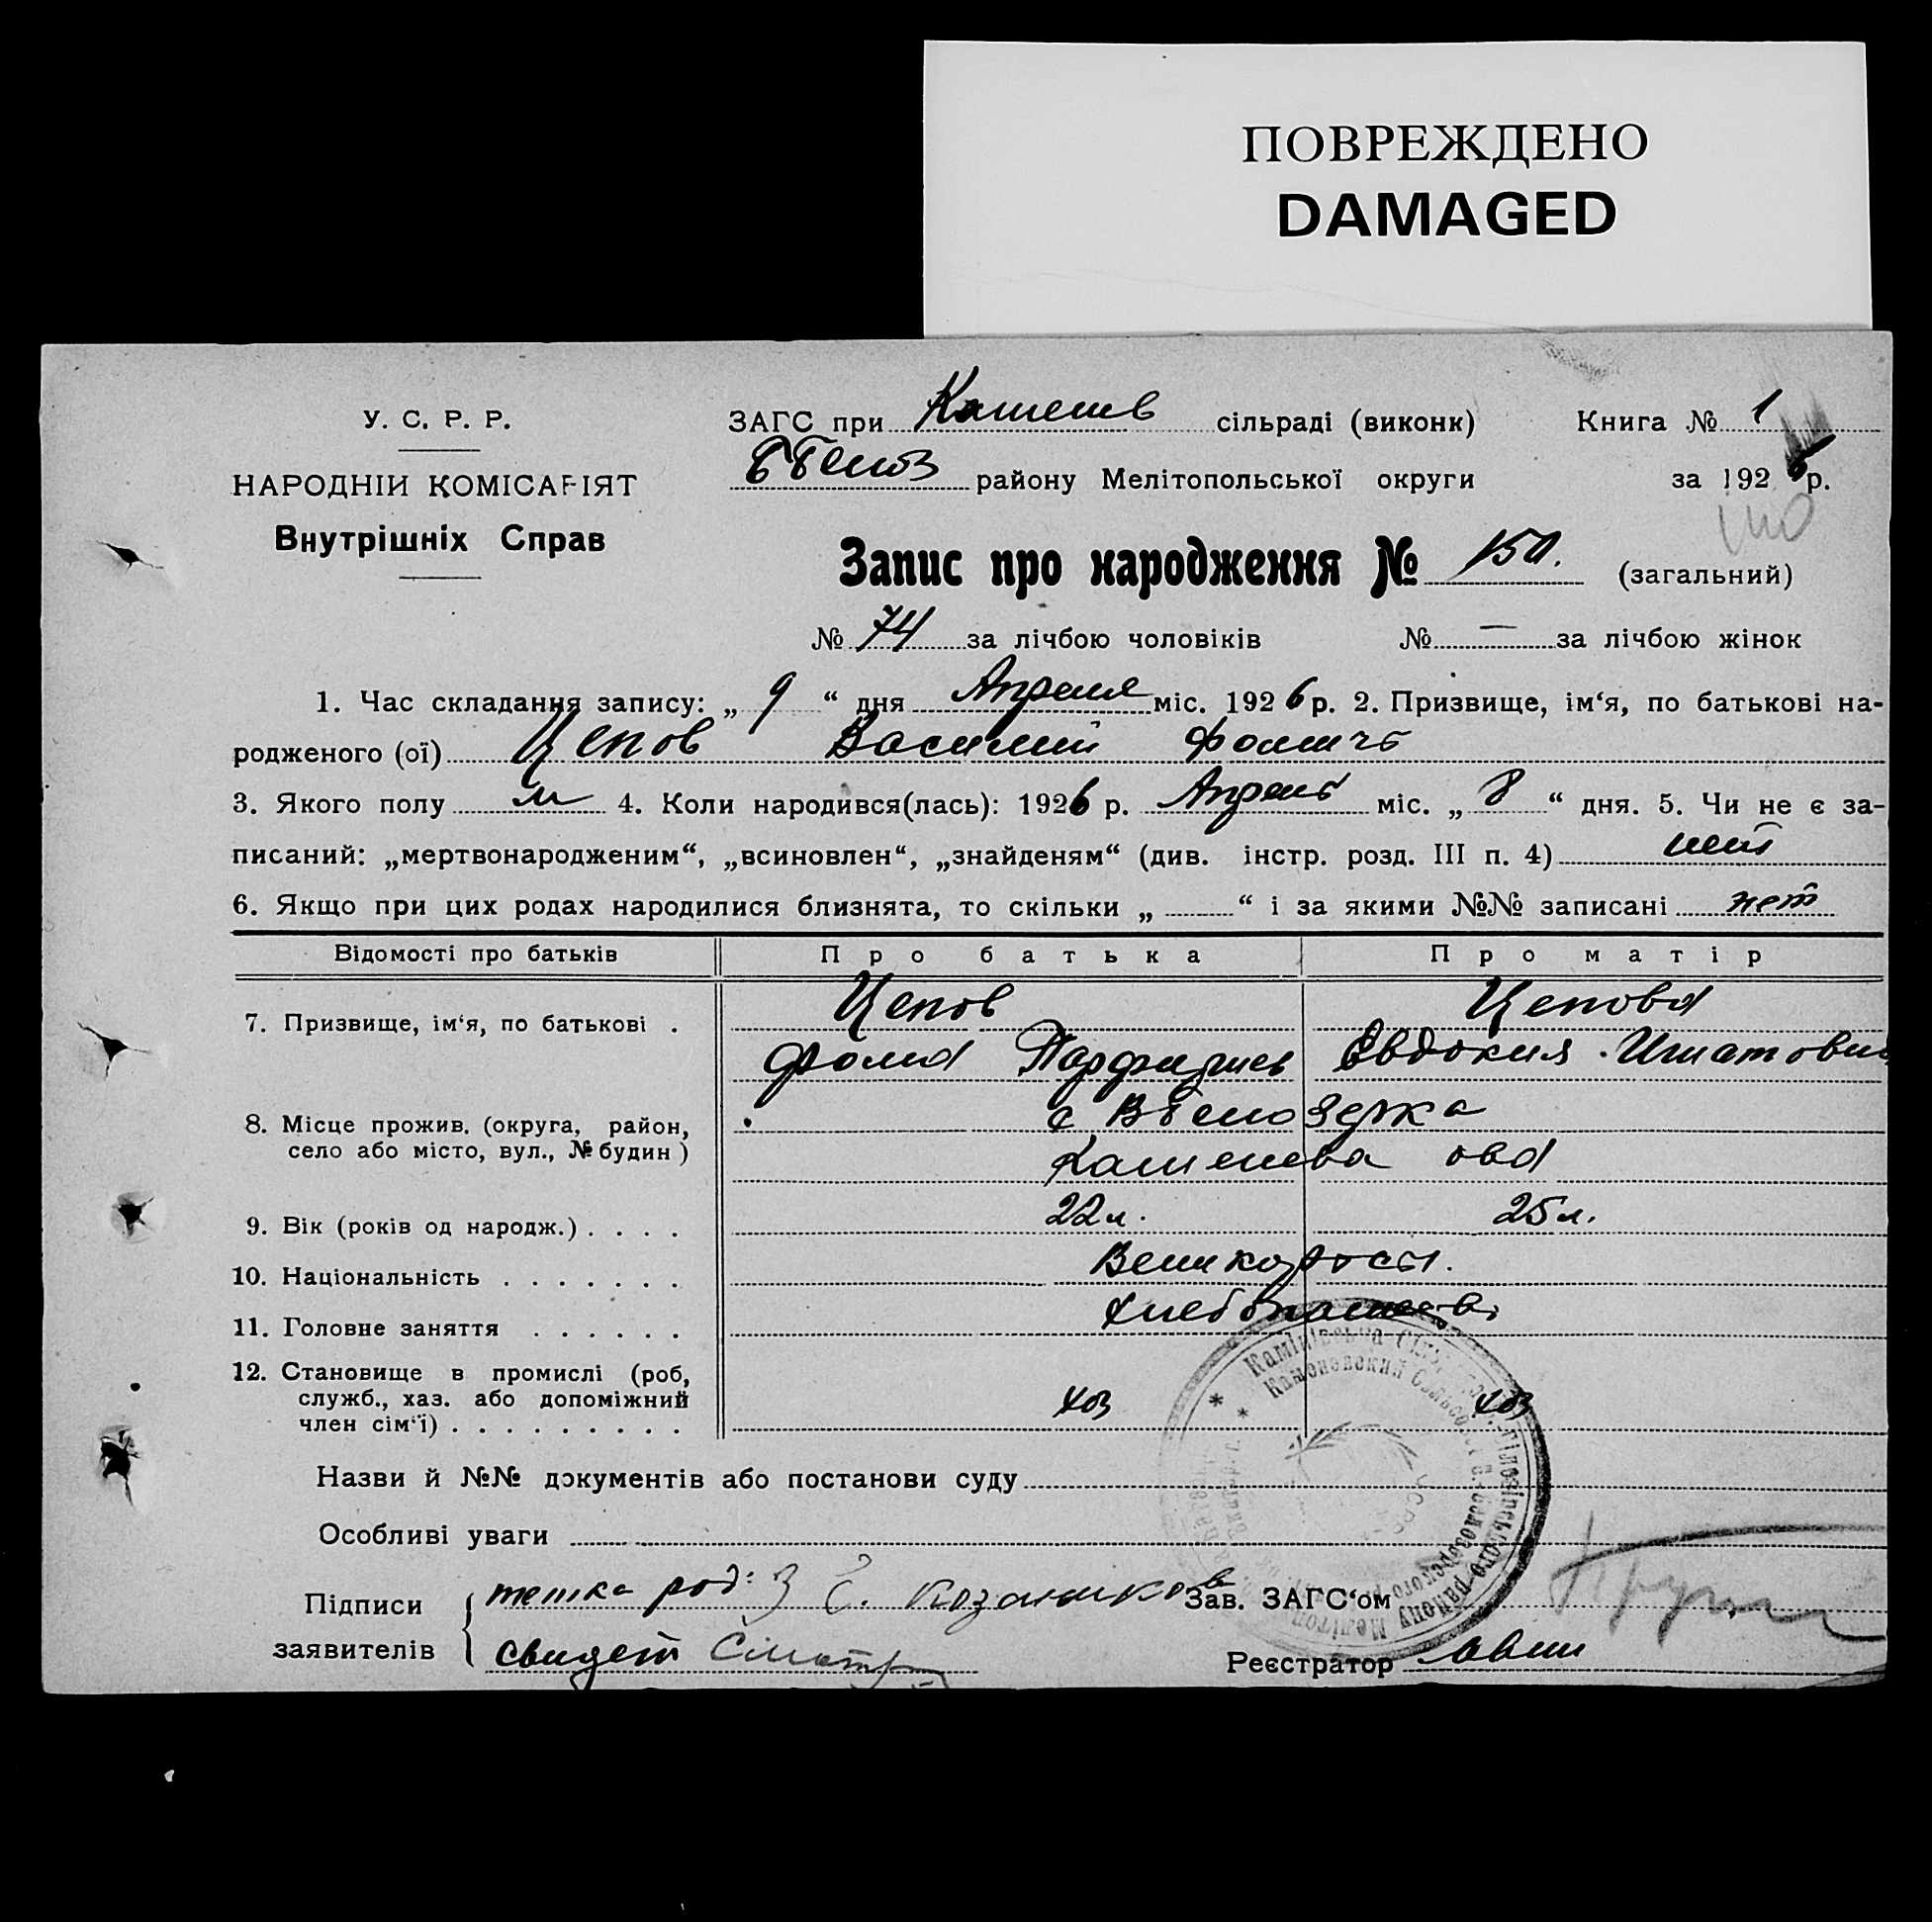 ПОВРЕЖДЕНО
DAMAGED
У. С. Р. Р.
НАРОДНІЙ КОМІСАРІЯТ
Внутрішніх Справ
ЗАГС при сільраді (виконк) Книга № 1
району Мелітопольської округи за 1926 р.
Запис про народження № 150. (загальний)
№ 74 за лічбою чоловіків № — за лічбою жінок
1. Час складання запису: „ 9 “ дня Апреля міс. 1926 р. 2. Призвище, ім‘я, по батькові на-
родженого (ої) Цепов Василий Фомичъ
3. Якого полу м 4. Коли народився(лась): 1926 р. Апрель міс. „ 8 “ дня. 5. Чи не є за-
писаний: „мертвонародженим“, „всиновлен“, „знайденям“ (див. інстр. розд. III п. 4) нет
6. Якщо при цих родах народилися близнята, то скільки „ “ і за якими №№ записані нет
Відомості про батьків Про батька Про матір
7. Призвище, ім‘я, по батькові . Цепов Цепова
Фома Евдокия
8. Місце прожив. (округа, район, с
село або місто, вул., № будин)
9. Вік (років од народж.) . . . . 22 л. 25 л.
10. Національність . . . . . . . Великоросы.
11. Головне заняття . . . . . .
12. Становище в промислі (роб,
служб., хаз. або допоміжний хоз хоз
член сім‘ї) . . . . . . . . .
Назви й №№ документів або постанови суду
Особливі уваги
Підписи тетка род: Зав. ЗАГС‘ом
заявителів свидет Реєстратор